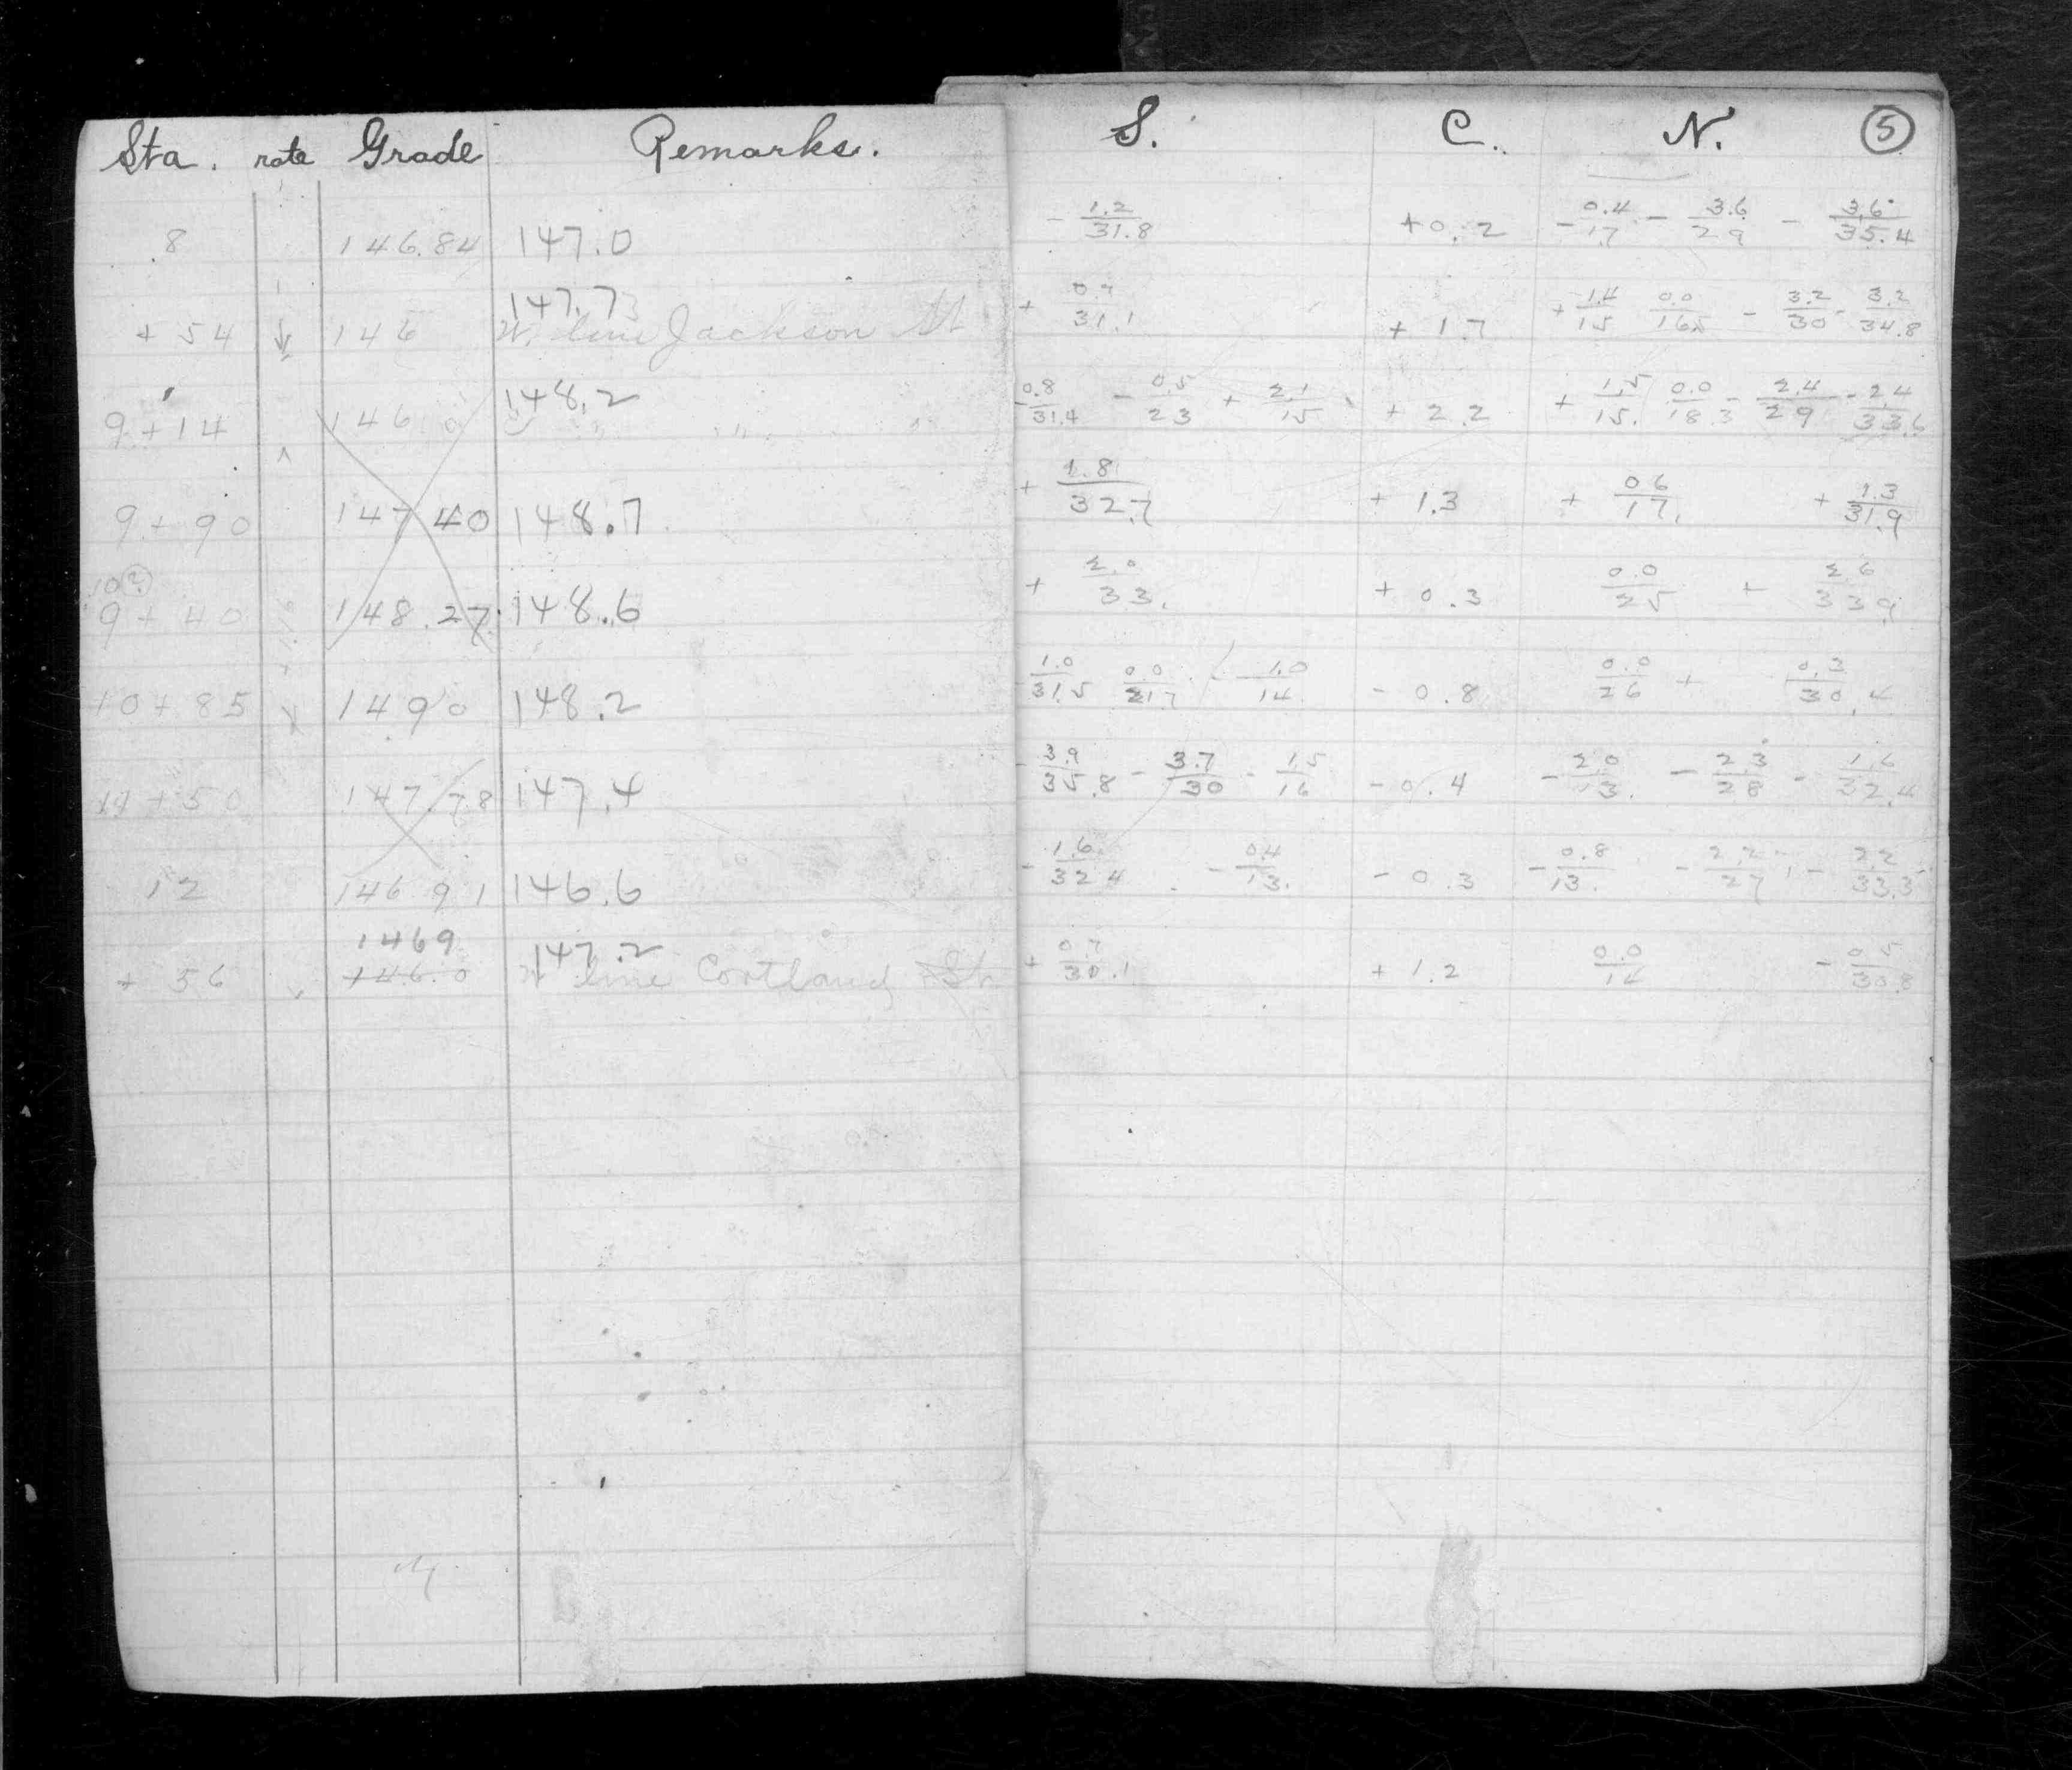 Sta. rate Grade Remarks. S. C. N. 5
8 146.84 147.0 - 1.2/31.8 +0.2 - 0.4/17 - 3.6/29 - 3.6/35.4
147.73
+ 54 146 W. line Jackson St + 31.1 + 1.7 + 1.4/15 0.0/16.5 - 3.2/30 - 3.2/34.8
148.2
9+14 146.0 " " " 0.8/31.4 - 0.5/23 + 2.1/15 + 2.2 + 1.5/15. 0.0/18.3 - 2.4/29 - 2.4/33.6
9+90 147 40 148.7 + 1.8/32.7 + 1.3 + 06/17. + 1.3/31.9
10(?)
9+40 148.27 148.6 + 2.0/33. + 0.3 0.0/25 + 2.6/33.9
10+85 149.0 148.2 1.0/31.5 0.0/21.7 - 1.0/14 - 0.8 0.0/26 + 0.3/30.4
11+50 147.78 147.4 - 3.9/35.8 - 3.7/30 - 1.5/16 - 0.4 - 2.0/13. - 2.3/28 - 1.6/32.4
12 146.91 146.6 - 1.6/32.4 - 0.4/13. - 0.3 - 0.8/13. - 2.2/27 - 2.2/33.3
1469 147.2
+ 56 146.0 W line Cortland St. + 0.7/30.1 + 1.2 0.0/14 - 0.5/30.8